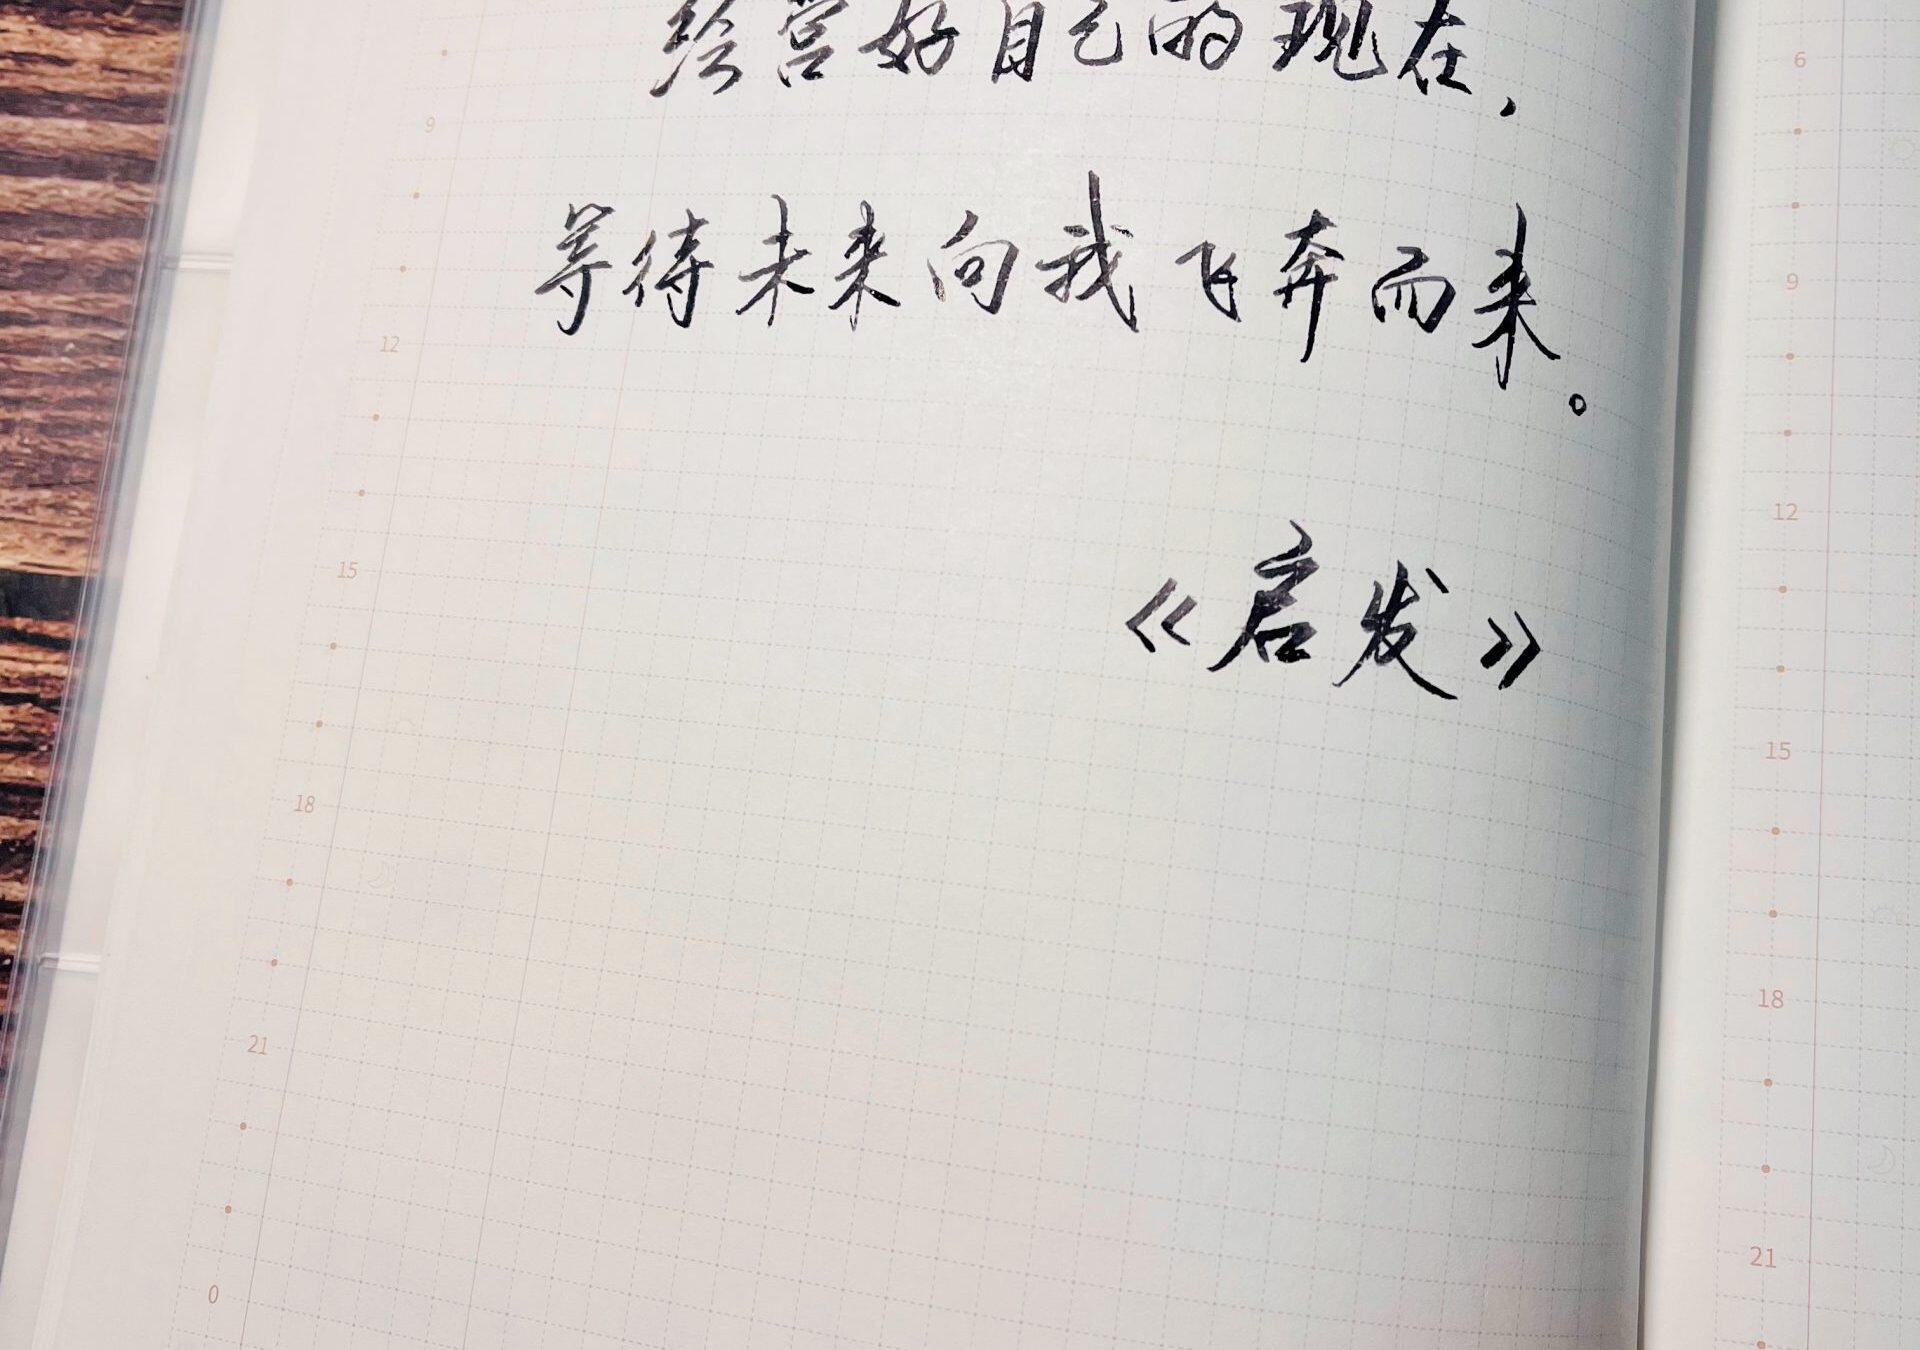 经营好自己的现在，
等待未来向我飞奔而来。
《启发》
9
12
15
18
21
0
6
9
12
15
18
21